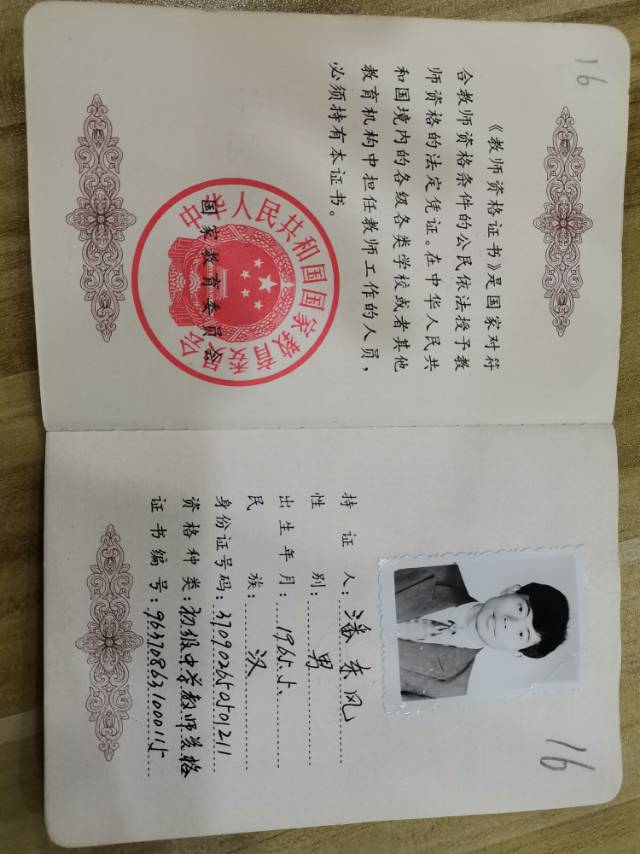 16
《教师资格证书》是国家对符
合教师资格条件的公民依法授予教
师资格的法定凭证。在中华人民共
和国境内的各级各类学校或者其他
教育机构中担任教师工作的人员，
必须持有本证书。
中华人民共和国国家教育委员会
国家教育委员会
持证人：潘东风
性别：男
出生年月：1965.5.
民族：汉
身份证号码：370902650501211
资格种类：初级中学教师资格
证书编号：963708631000115
16